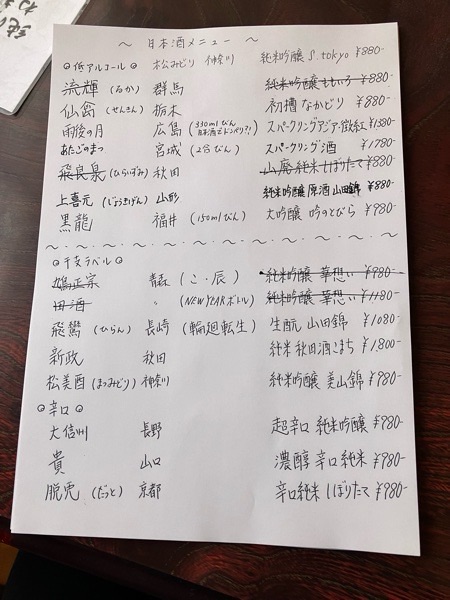 ～ 日本酒メニュー ～
◎低アルコール◎ 松みどり 神奈川 純米吟醸 S.tokyo ¥880-
流輝 (るか) 群馬 純米吟醸 ももいろ ¥880-
仙禽 (せんきん) 栃木 初槽 なかどり ¥880-
雨後の月 広島 (330mlびん スパークリングアジア・微紅 ¥1380-
あたごのまつ 宮城 (2合びん) スパークリング酒 ¥1780-
飛良泉 (ひらいずみ) 秋田 山廃純米 しぼりたて ¥880-
上喜元 (じょうきげん) 山形 純米吟醸 原酒 山田錦 ¥880-
黒龍 福井 (150mlびん) 大吟醸 吟のとびら ¥980-
◎干支ラベル◎
鳩正宗 青森 (こ・辰) 純米吟醸 華想い ¥980-
田酒 〃 (NEW YEARボトル) 純米吟醸 華想い ¥1180-
飛鸞 (ひらん) 長崎 (輪廻転生) 生酛 山田錦 ¥1080-
新政 秋田 純米 秋田酒こまち ¥1,800-
松美酉 (まつみどり) 神奈川 純米吟醸 美山錦 ¥980-
◎辛口◎
大信州 長野 超辛口 純米吟醸 ¥980-
貴 山口 濃醇 辛口純米 ¥980-
脱兎 (だっと) 京都 辛口純米 しぼりたて ¥980-